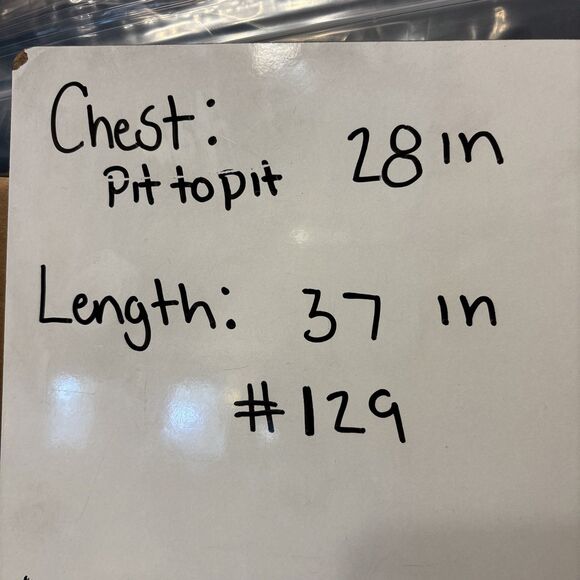 Chest: 28 in
Pit to pit
Length: 37 in
#129